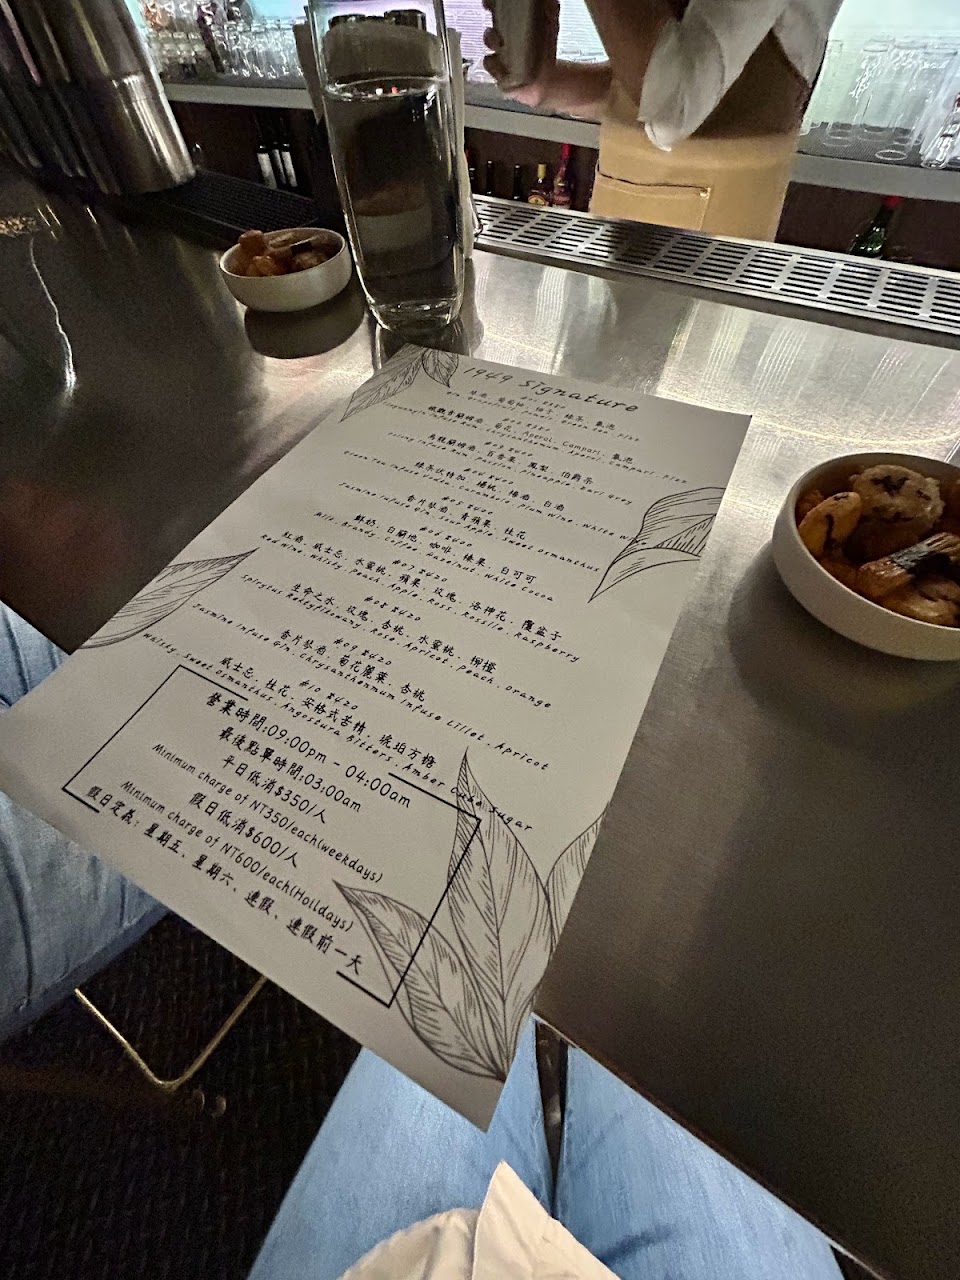 1949 Signature
#01 $380
琴酒、葡萄柚、柚子、綠茶、氣泡
Gin . Grapefruit . Pomelo . Green Tea . Fizz
#02 $380
鐵觀音蘭姆酒、菊花、Aperol、Campari、氣泡
Tieguanyin Infuse Rum . Chrysanthemum . Aperol . Campari . Fizz
#03 $400
烏龍蘭姆酒、百香果、鳳梨、伯爵茶
Oolong Infuse Rum . Passion . Pineapple . Earl Grey
#04 $400
綠茶伏特加、楊桃、梅酒、白酒
Green Tea Infuse Vodka . Carambola . Plum Wine . White Wine
#05 $400
香片琴酒、青蘋果、桂花
Jasmine Infuse Gin . Sour Apple . Sweet Osmanthus
#06 $400
鮮奶、白蘭地、咖啡、榛果、白可可
Milk . Brandy . Coffee . Hazelnut . White Cocoa
#07 $420
紅酒、威士忌、水蜜桃、蘋果、玫瑰、洛神花、覆盆子
Red Wine . Whisky . Peach . Apple . Rose . Roselle . Raspberry
#08 $420
生命之水、玫瑰、杏桃、水蜜桃、柳橙
Spirytus Rektyfikowany . Rose . Apricot . Peach . Orange
#09 $420
香片琴酒、菊花麗葉、杏桃
Jasmine Infuse Gin . Chrysanthemum Infuse Lillet . Apricot
#10 $420
威士忌、桂花、安格式苦精、琥珀方糖
Whisky . Sweet Osmanthus . Angostura Bitters . Amber Cube Sugar
營業時間:09:00pm - 04:00am
最後點單時間:03:00am
平日低消$350/人
Minimum charge of NT350/each(weekdays)
假日低消$600/人
Minimum charge of NT600/each(Holidays)
假日定義：星期五、星期六、連假、連假前一天